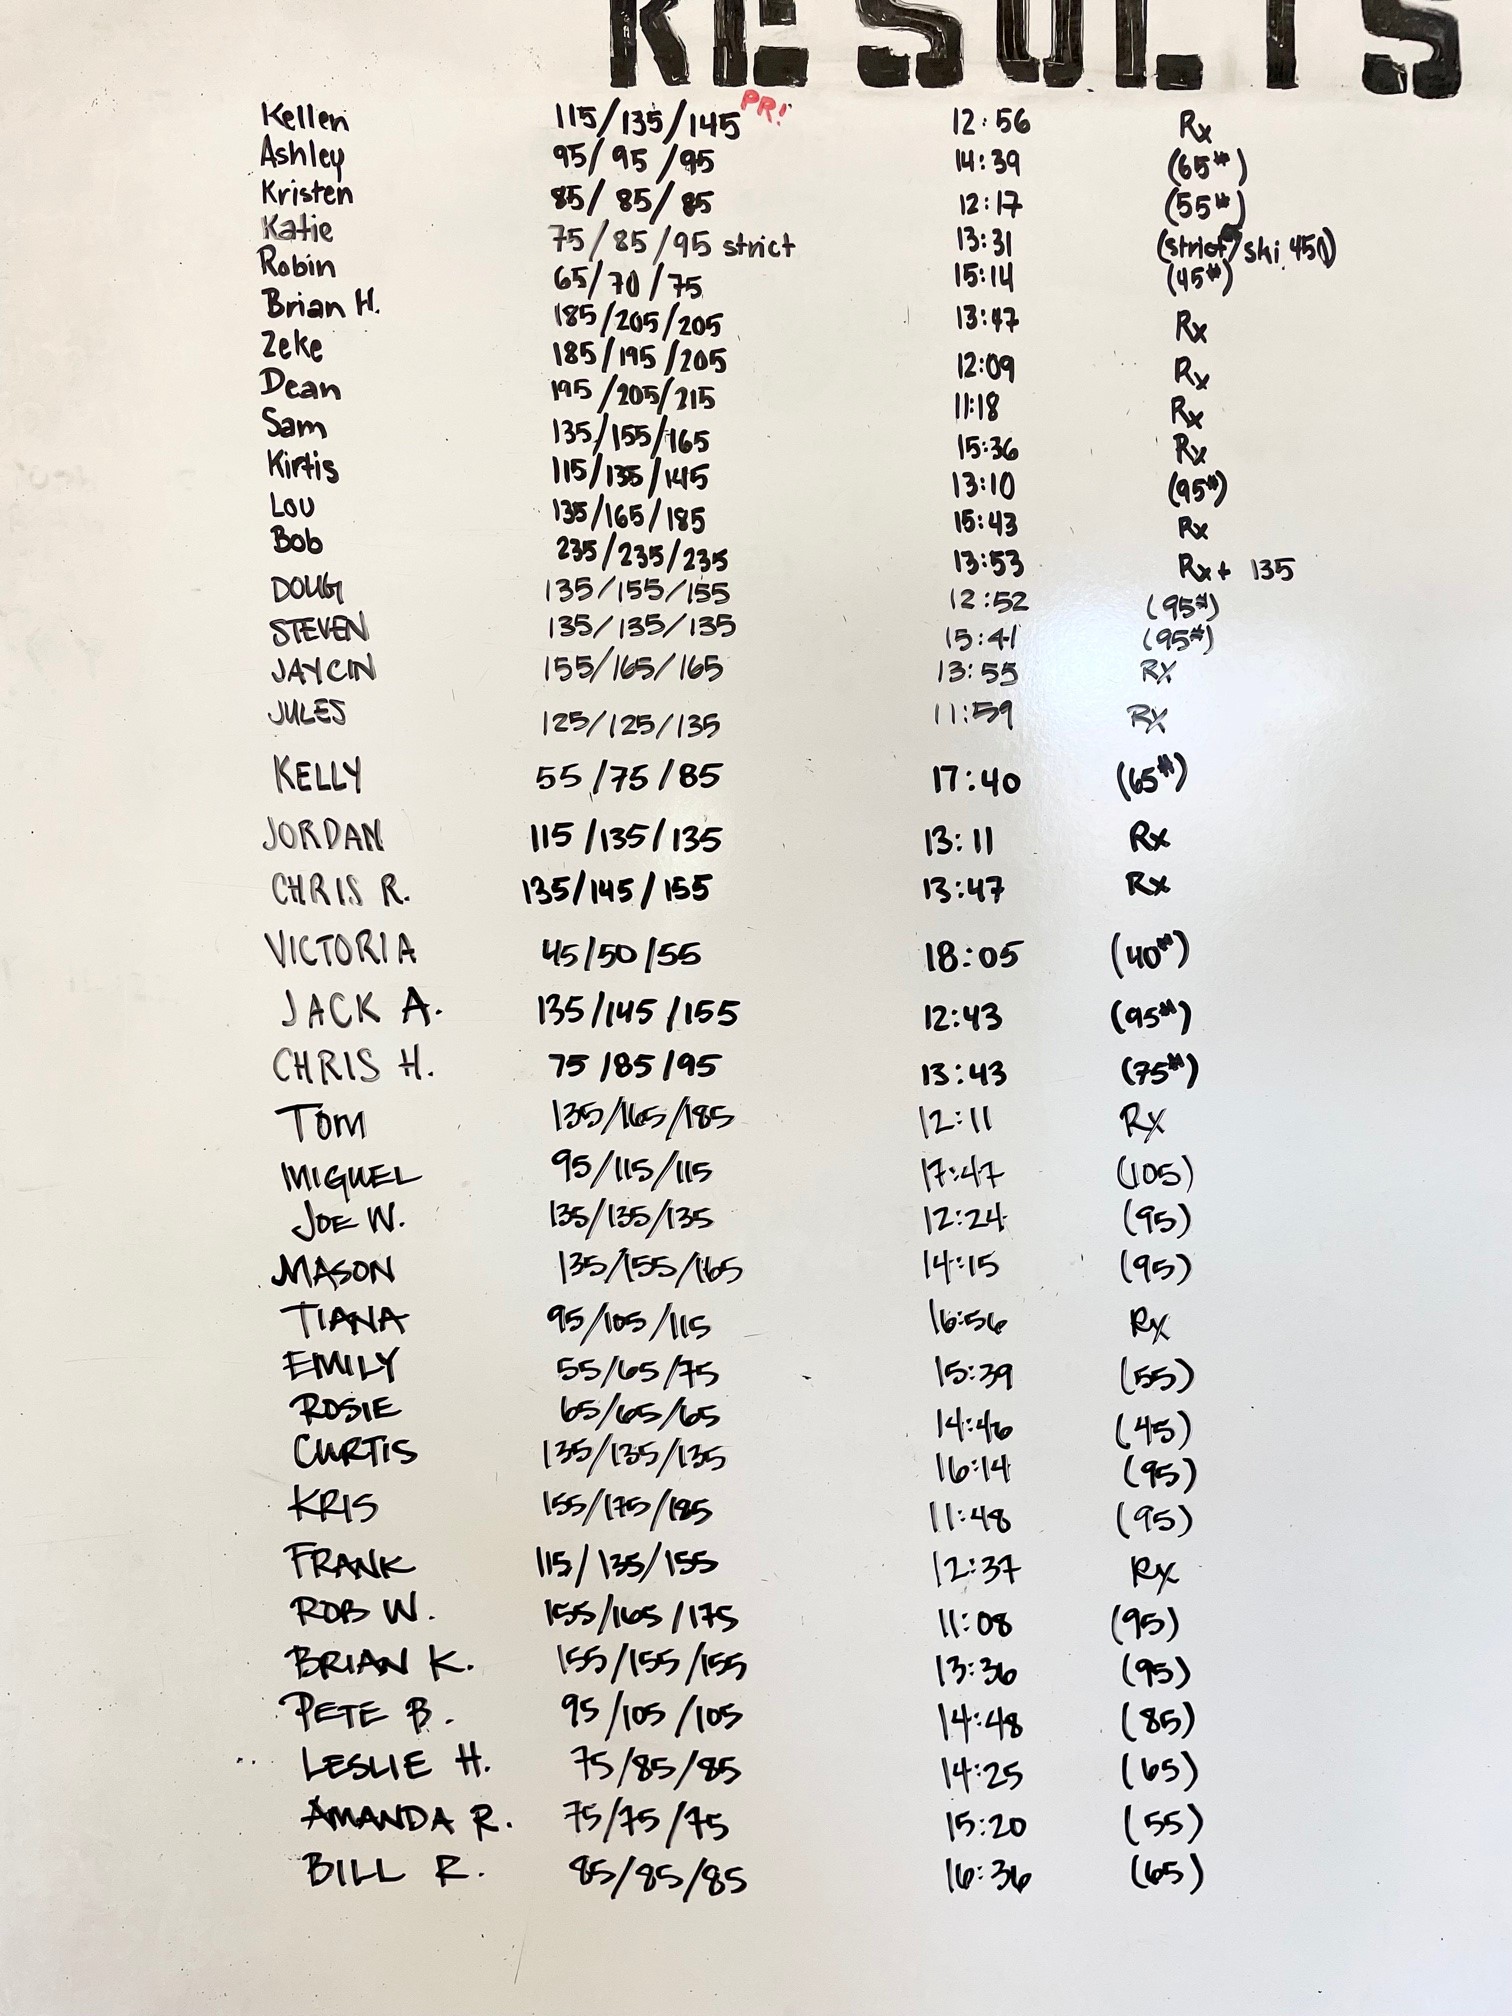 RESULTS
Kellen 115/135/145 PR! 12:56 Rx
Ashley 95/95/95 14:39 (65#)
Kristen 85/85/85 12:17 (55#)
Katie 75/85/95 strict 13:31 (strict/ski 450)
Robin 65/70/75 15:14 (45#)
Brian H. 185/205/205 13:47 Rx
Zeke 185/195/205 12:09 Rx
Dean 195/205/215 11:18 Rx
Sam 135/155/165 15:36 Rx
Kirtis 115/135/145 13:10 (95#)
Lou 135/165/185 15:43 Rx
Bob 235/235/235 13:53 Rx+ 135
DOUG 135/155/155 12:52 (95#)
STEVEN 135/135/135 15:41 (95#)
JAYCIN 155/165/165 13:55 RX
JULES 125/125/135 11:59 RX
KELLY 55/75/85 17:40 (65#)
JORDAN 115/135/135 13:11 Rx
CHRIS R. 135/145/155 13:47 Rx
VICTORIA 45/50/55 18:05 (40#)
JACK A. 135/145/155 12:43 (95#)
CHRIS H. 75/85/95 13:43 (75#)
Tom 135/165/185 12:11 Rx
MIGUEL 95/115/115 17:47 (105)
JOE W. 135/135/135 12:24 (95)
MASON 135/155/165 14:15 (95)
TIANA 95/105/115 16:56 Rx
EMILY 55/65/75 15:39 (55)
ROSIE 65/65/65 14:46 (45)
CURTIS 135/135/135 16:14 (95)
KRIS 155/175/185 11:48 (95)
FRANK 115/135/155 12:37 Rx
ROB W. 155/165/175 11:08 (95)
BRIAN K. 155/155/155 13:36 (95)
PETE B. 95/105/105 14:48 (85)
LESLIE H. 75/85/85 14:25 (65)
AMANDA R. 75/75/75 15:20 (55)
BILL R. 85/85/85 16:36 (65)